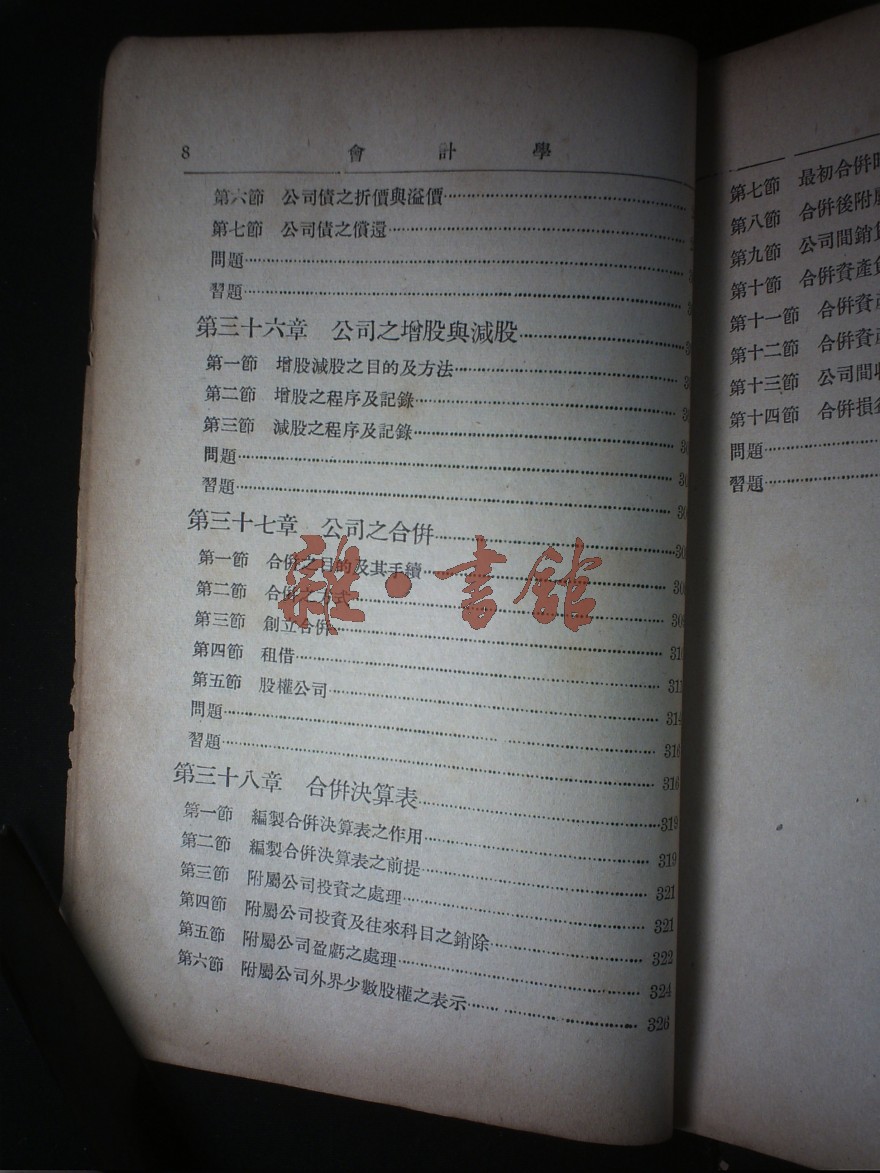 8 會計學
第六節 公司債之折價與溢價
第七節 公司債之償還
問題
習題
第三十六章 公司之增股與減股
第一節 增股減股之目的及方法
第二節 增股之程序及記錄
第三節 減股之程序及記錄
問題
習題
第三十七章 公司之合併
第一節 合併之目的及其手續
第二節 合併之方式
第三節 創立合併
第四節 租借
第五節 股權公司 314
問題 316
習題 316
第三十八章 合併決算表 319
第一節 編製合併決算表之作用 319
第二節 編製合併決算表之前提 321
第三節 附屬公司投資之處理 321
第四節 附屬公司投資及往來科目之銷除 322
第五節 附屬公司盈虧之處理 324
第六節 附屬公司外界少數股權之表示 326
雜·書館
第七節 最初合併
第八節 合併後附
第九節 公司間銷
第十節 合併資產
第十一節 合併資
第十二節 合併資
第十三節 公司間
第十四節 合併損
問題
習題